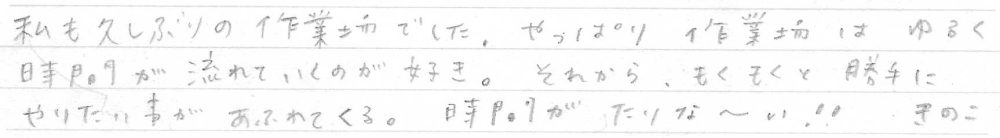 私も久しぶりの作業場でした。やっぱり 作業場は ゆるく
時間が 流れていくのが好き。それから、もくもくと 勝手に
やりたい事が あふれてくる。 時間が たりな〜い!! きのこ